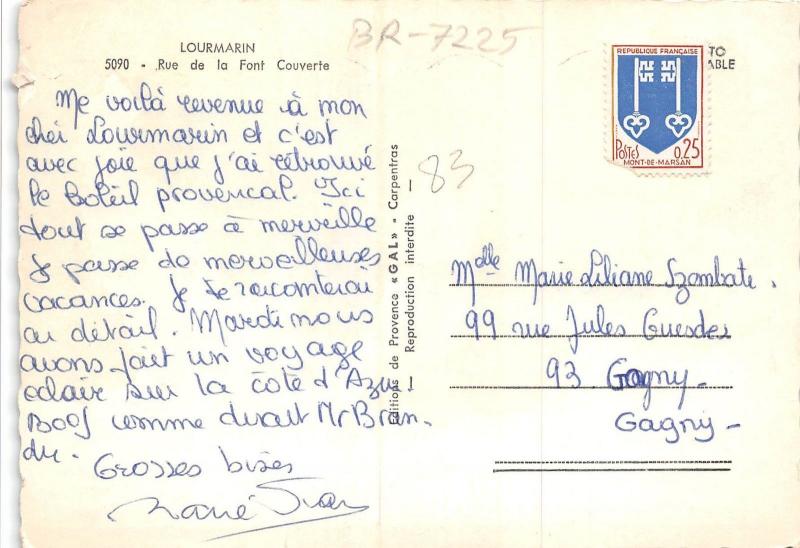 BR-7225
LOURMARIN
5090 - Rue de la Font Couverte
Me voilà revenue à mon
cher Lourmarin et c'est
avec joie que j'ai retrouvé
le Soleil provencal. Ici
tout se passe à merveille
je passe de merveilleuses
vacances. Je te raconterai
au détail. Mardi nous
avons fait un voyage
eclair sur la côte d'Azur.
Boof comme dirait Mr Bran-
du.
Grosses bises
83
Editions de Provence «GAL» - Carpentras
Reproduction interdite
REPUBLIQUE FRANÇAISE
POSTES
0,25
MONT-DE-MARSAN
TO
ABLE
Mdlle Marie Liliane Szombate.
99 rue Jules Guesdes
93 Gagny-
Gagny-